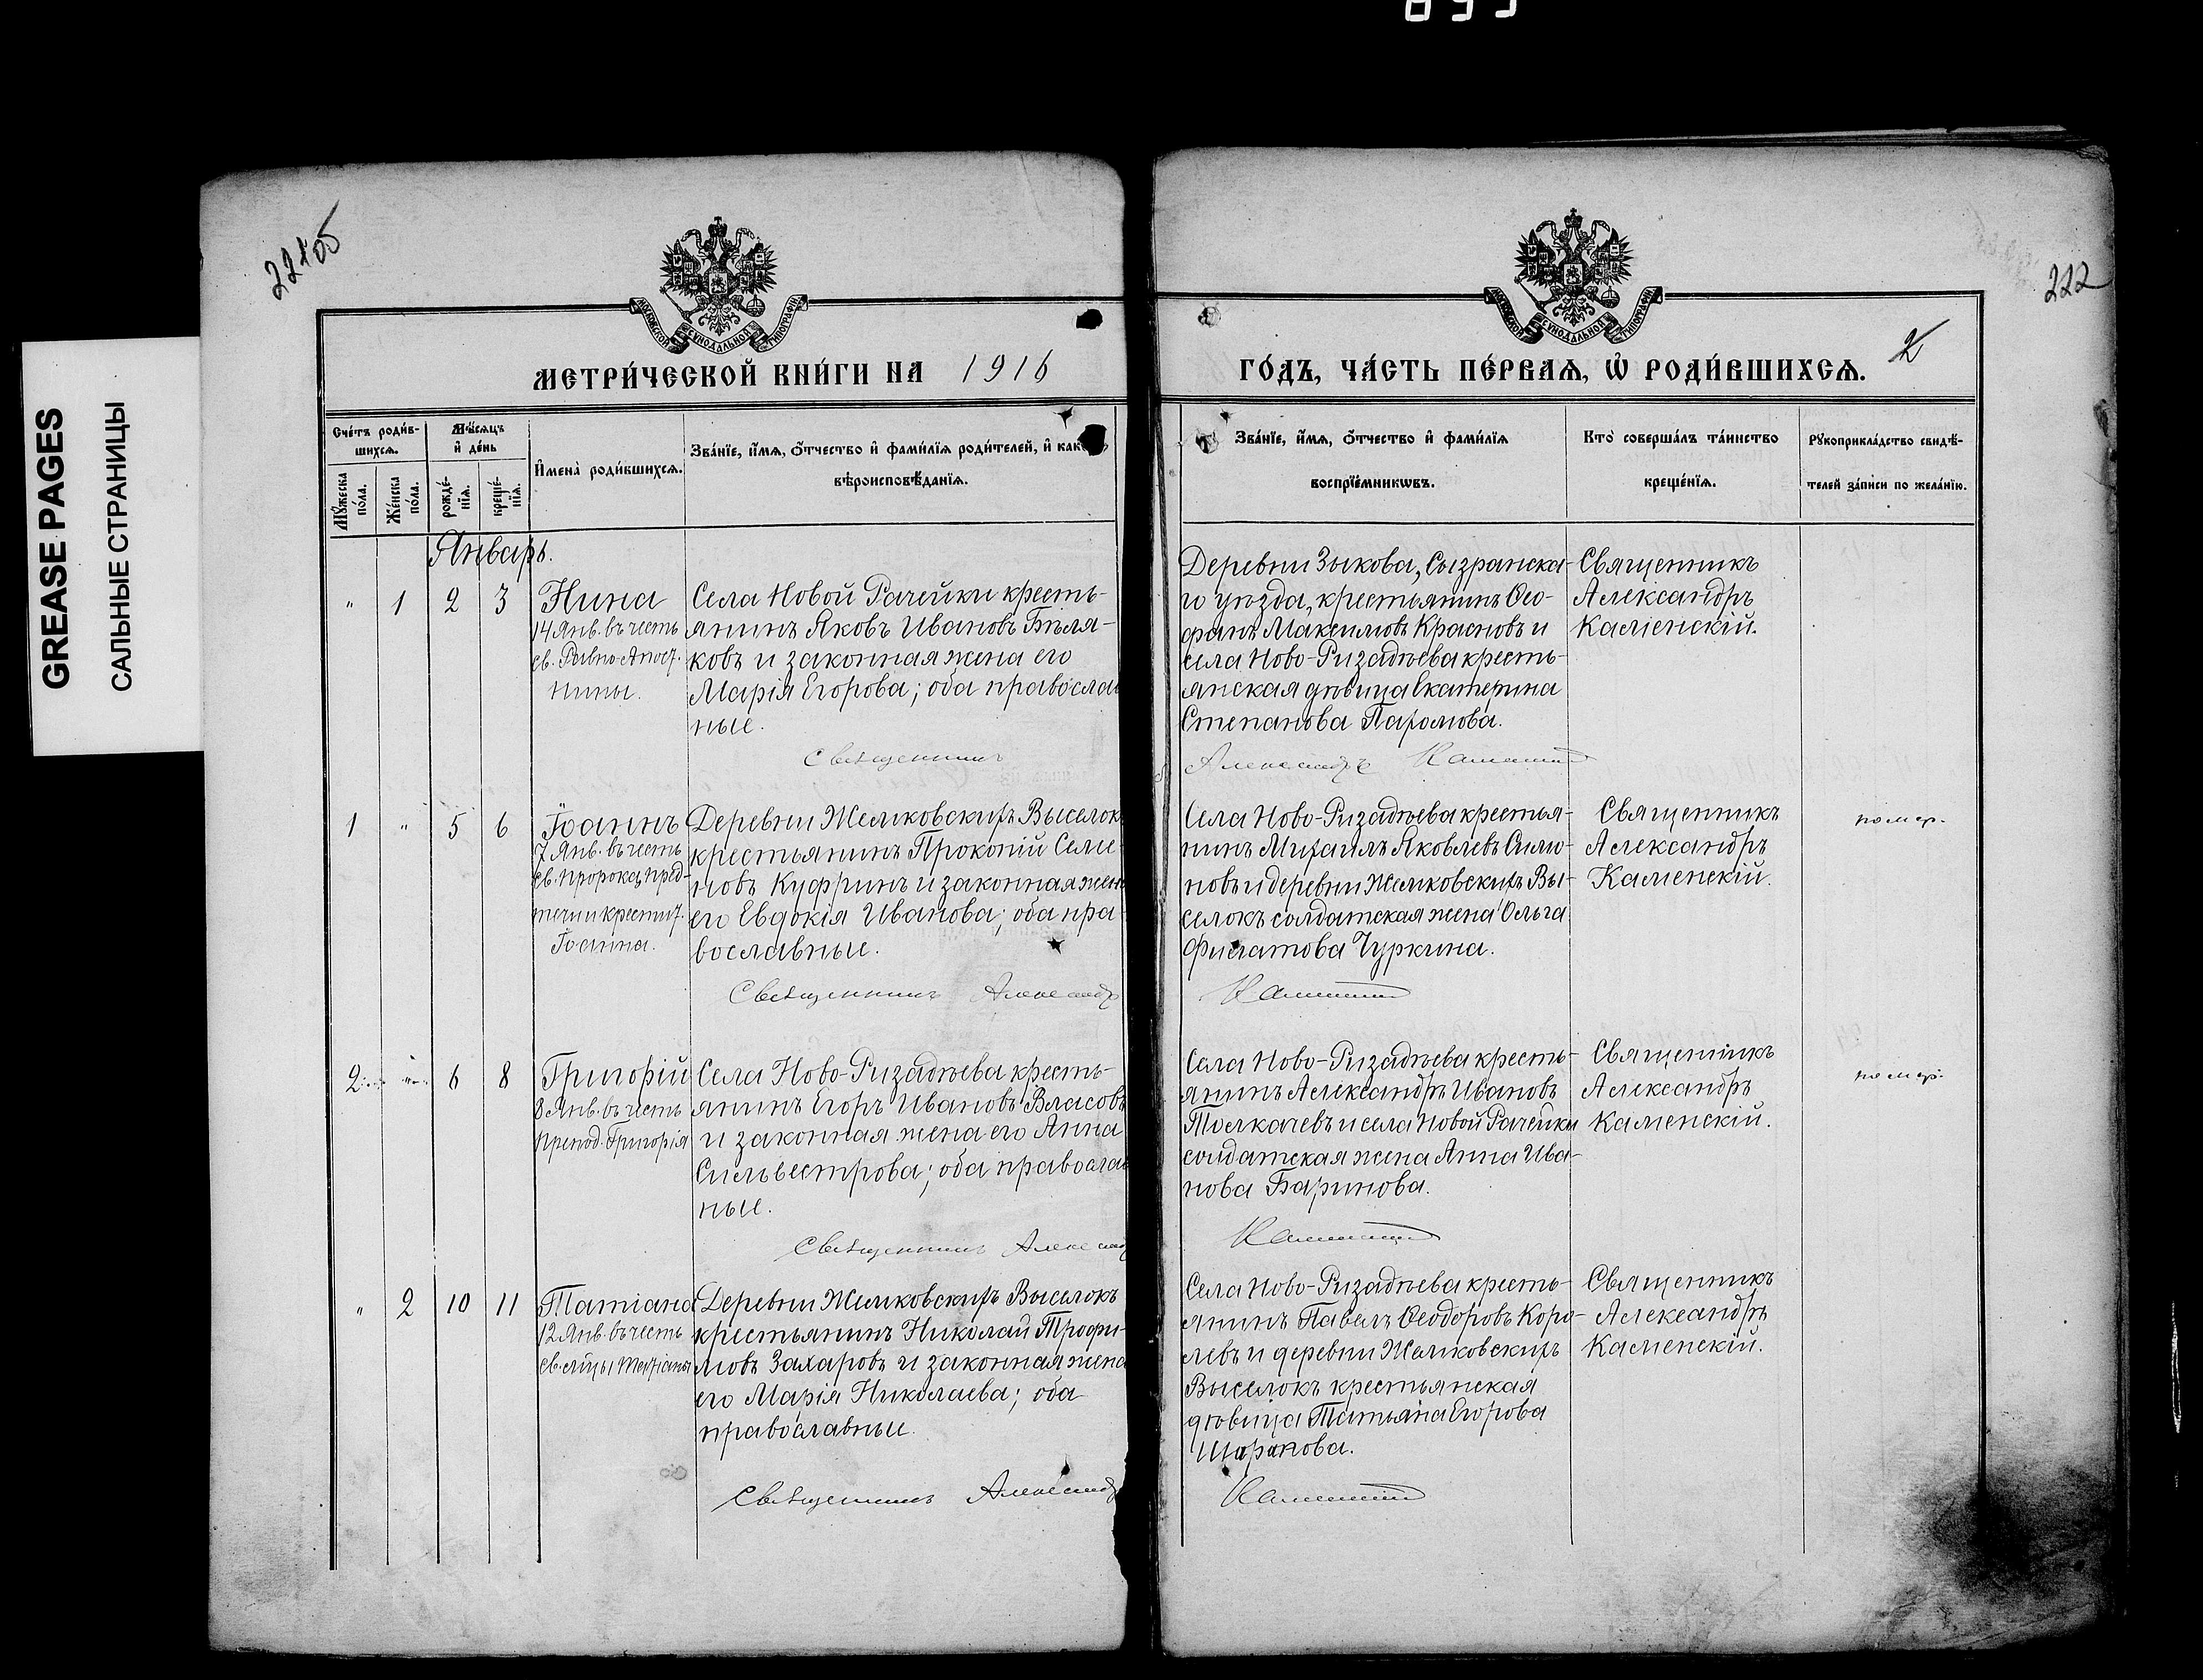 GREASE PAGES
САЛЬНЫЕ СТРАНИЦЫ
222
2
МОСКОВСКОЙ СѴНОДАЛЬНОЙ ТИПОГРАФІИ
МОСКОВСКОЙ СѴНОДАЛЬНОЙ ТИПОГРАФІИ
МЕТРИ́ЧЕСКОЙ КНИ́ГИ НА 1916
ГО́ДЪ, ЧА́СТЬ ПЕ́РВАѦ, Ѽ РОДИ́ВШИХСѦ.
Сче́тъ роди́в-
шихсѧ.
Мꙋ́жеска по́ла.
Же́нска по́ла.
Мѣ́сѧцъ
и҆ де́нь
рожде́-
нїѧ.
креще́-
нїѧ.
И҆мена̀ роди́вшихсѧ.
Зва́нїе, и҆́мѧ, ѻ҆́тчество и҆ фами́лїѧ роди́телей, и҆ как
вѣроисповѣ́данїѧ.
Зва́нїе, и҆́мѧ, ѻ҆́тчество и҆ фами́лїѧ
воспрїе́мникѡвъ.
Кто̀ соверша́лъ та́инство
креще́нїѧ.
Рꙋкоприкла́дство свидѣ́-
телей за́писи по жела́нїю.
Январь.
" 1 2 3
Нина
14 Янв. въ честь
св. Равно-Апост.
Нины.
Села Новой Рачейки кресть-
янинъ Яковъ Ивановъ Бѣля-
ковъ и законная жена его
Марія Егорова; оба православ
ные.
Деревни Зыкова, Сызранска-
го уѣзда, крестьянинъ Ѳео-
фанъ Максимовъ Красновъ и
села Ново-Ризадѣева кресть-
янская дѣвица Екатерина
Степанова Паромова.
Священникъ
Александръ
Каменскій.
Священникъ Александръ Каменскій
1 " 5 6
Іоаннъ
7 Янв. въ честь
св. Пророка, Пред-
течи и крестит.
Іоанна.
Деревни Жемковскихъ Выселок
крестьянинъ Прокопій Семе-
новъ Куфринъ и законная жена
его Евдокія Иванова; оба пра-
вославные.
Села Ново-Ризадѣева крестья-
нинъ Михаилъ Яковлевъ Симо-
новъ и деревни Жемковскихъ Вы-
селокъ солдатская жена Ольга
Филатова Чуркина.
Священникъ
Александръ
Каменскій.
помер.
Священникъ Александръ Каменскій
2 " 6 8
Григорій
8 Янв. въ честь
препод. Григорія
Села Ново-Ризадѣева кресть-
янинъ Егоръ Ивановъ Власовъ
и законная жена его Анна
Сильвестрова; оба православ
ные.
Села Ново-Ризадѣева кресть-
янинъ Александръ Ивановъ
Толкачевъ и села Новой Рачейки
солдатская жена Анна Ива-
нова Баринова.
Священникъ
Александръ
Каменскій.
помер.
Священникъ Александръ Каменскій
" 2 10 11
Татіана
12 Янв. въ честь
св. мц̃ы Татіаны
Деревни Жемковскихъ Выселокъ
крестьянинъ Николай Трофи-
мовъ Захаровъ и законная жена
его Марія Николаева; оба
православные.
Села Ново-Ризадѣева кресть-
янинъ Павелъ Ѳеодоровъ Коро-
левъ и деревни Жемковскихъ
Выселокъ крестьянская
дѣвица Татьяна Егорова
Шарапова.
Священникъ
Александръ
Каменскій.
Священникъ Александръ Каменскій